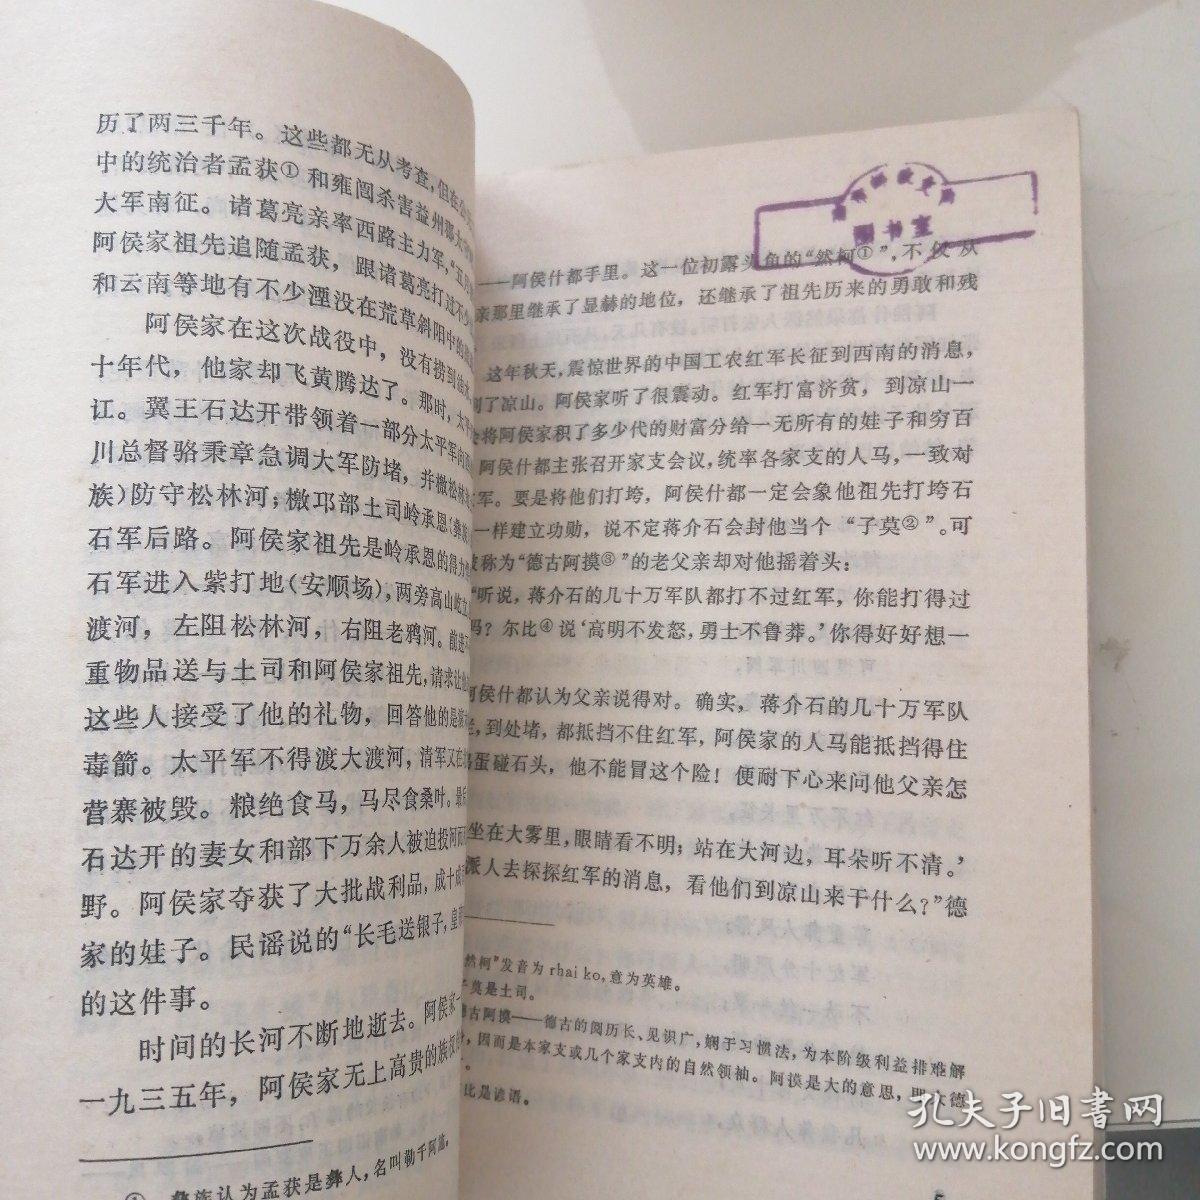 历了两三千年。这些都无从考查，但在公
中的统治者孟获①和雍闿杀害益州郡太守
大军南征。诸葛亮亲率西路主力军，“五月
阿侯家祖先追随孟获，跟诸葛亮打过不少
和云南等地有不少湮没在荒草斜阳中的
阿侯家在这次战役中，没有捞到油水
十年代，他家却飞黄腾达了。那时，太平
江。翼王石达开带领着一部分太平军向西
川总督骆秉章急调大军防堵，并檄松林
族）防守松林河；檄邛部土司岭承恩（彝族
石军后路。阿侯家祖先是岭承恩的得力
石军进入紫打地（安顺场），两旁高山屹立
渡河，左阻松林河，右阻老鸦河。前进不
重物品送与土司和阿侯家祖先，请求让
这些人接受了他的礼物，回答他的是滚
毒箭。太平军不得渡大渡河，清军又在
营寨被毁。粮绝食马，马尽食桑叶。最后
石达开的妻女和部下万余人被迫投河而
野。阿侯家夺获了大批战利品，成十成
家的娃子。民谣说的“长毛送银子，皇
的这件事。
时间的长河不断地逝去。阿侯家一
一九三五年，阿侯家无上高贵的族权
① 彝族认为孟获是彝人，名叫勒千阿
图书室
——阿侯什都手里。这一位初露头角的“然柯①”，不仅从
亲那里继承了显赫的地位，还继承了祖先历来的勇敢和残
这年秋天，震惊世界的中国工农红军长征到西南的消息，
到了凉山。阿侯家听了很震动。红军打富济贫，到凉山一
会将阿侯家积了多少代的财富分给一无所有的娃子和穷百
阿侯什都主张召开家支会议，统率各家支的人马，一致对
军。要是将他们打垮，阿侯什都一定会象他祖先打垮石
一样建立功勋，说不定蒋介石会封他当个“子莫②”。可
被称为“德古阿摸③”的老父亲却对他摇着头：
“听说，蒋介石的几十万军队都打不过红军，你能打得过
吗？尔比④说‘高明不发怒，勇士不鲁莽。’你得好好想一
阿侯什都认为父亲说得对。确实，蒋介石的几十万军队
，到处堵，都抵挡不住红军，阿侯家的人马能抵挡得住
蛋碰石头，他不能冒这个险！便耐下心来问他父亲怎
坐在大雾里，眼睛看不明；站在大河边，耳朵听不清。’
派人去探探红军的消息，看他们到凉山来干什么？”德
然柯”发音为rhai ko，意为英雄。
莫是土司。
德古阿摸——德古的阅历长、见识广，娴于习惯法，为本阶级利益排难解
，因而是本家支或几个家支内的自然领袖。阿摸是大的意思，即大德
比是谚语。
5
孔夫子旧书网
www.kongfz.com